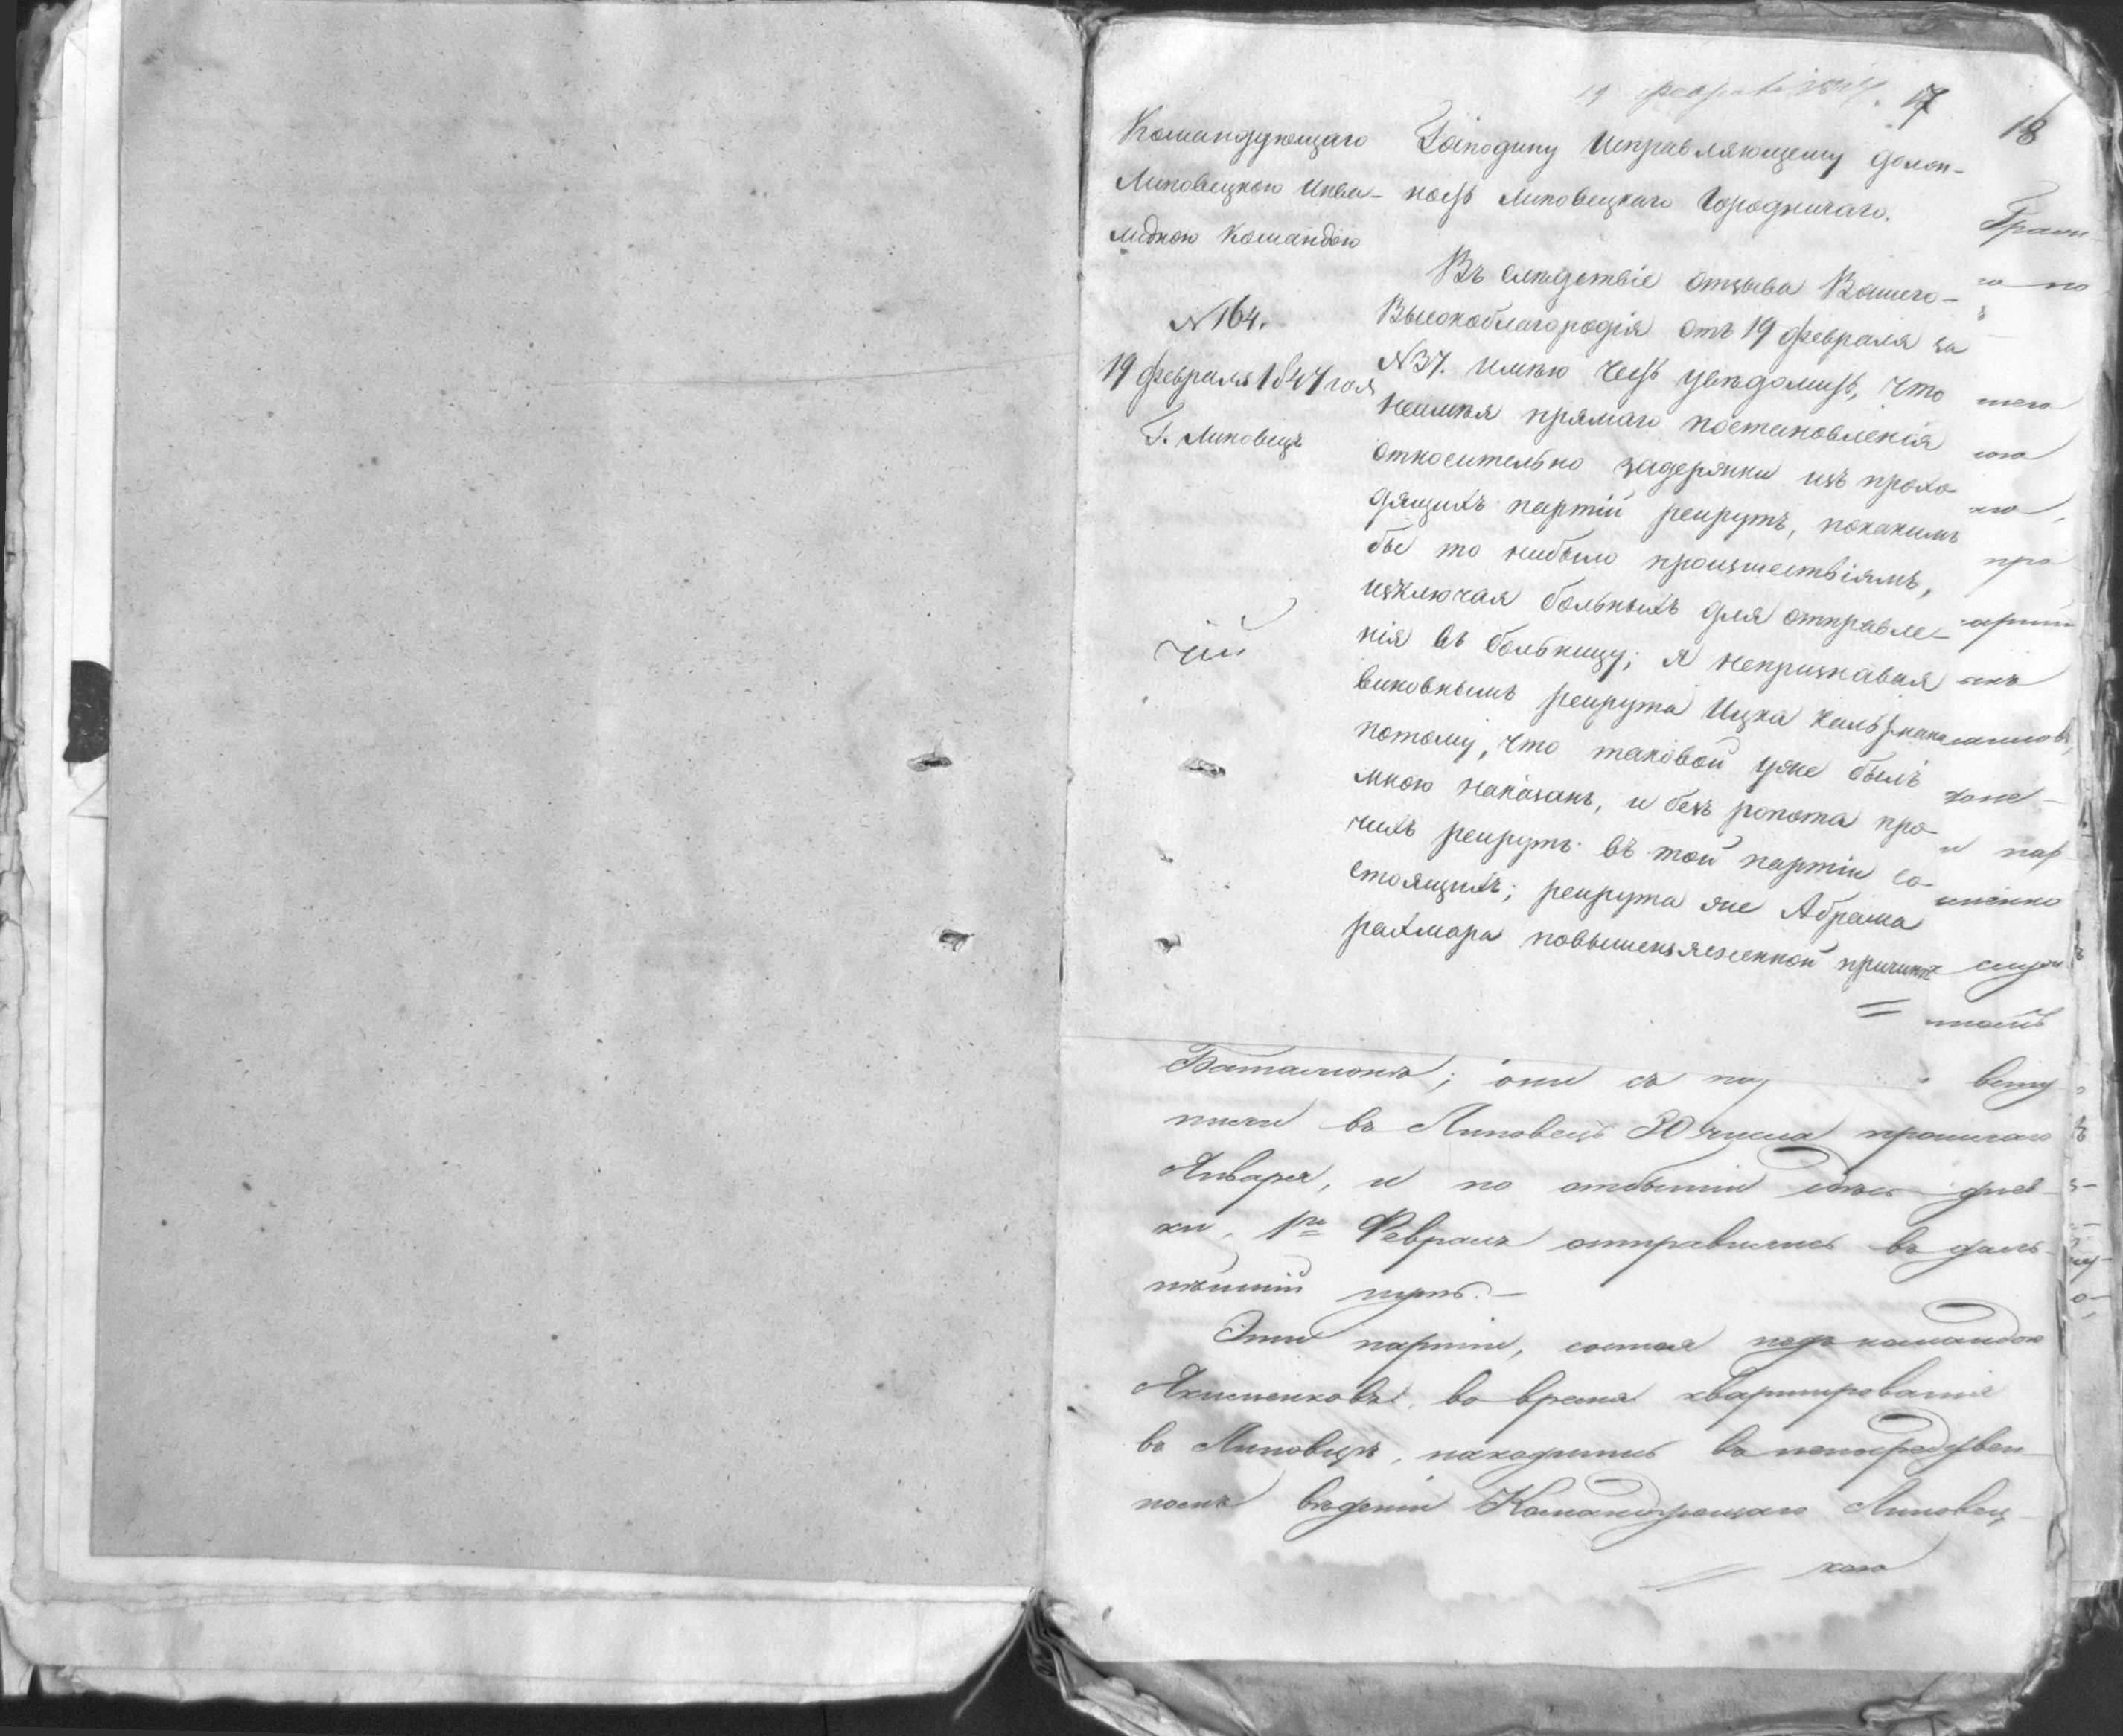 19 февраля 1847. 17
18
Командующаго
Липовецкою инва-
лидною Командою
№ 164.
19 февраля 1847 года
Г. Липовецъ
Господину Исправляющему долж-
ность Липовецкаго Городничаго.
Въ следствіе отзыва Вашего-
Высокоблагородія отъ 19 февраля за
№ 37. имѣю честь увѣдомить, что
неимѣя прямаго постановленія
относительно задержки изъ прохо-
дящихъ партій рекрутъ, покакимъ
бы то нибыло произшествіямъ,
изключая больныхъ для отправле-
нія въ больницу; я непризнавая
виновнымъ рекрута Ицка
потому, что таковой уже былъ
мною наказанъ, и безъ ропота про-
чихъ рекрутъ въ той партіи со-
стоящихъ; рекрута же Абрама
рахмара повышеизъясненной причинѣ
чій
но по
шего
кою
про
хотѣ-
и пар-
именно
случа
Баталіонъ; они съ
пили въ Липовецъ 30 числа прошлаго
Января, и по отбытіи здѣсь днев-
ки, 1го Февраля отправились въ даль-
нѣйшій путь.-
Эти партіи, состоя подъ командою
Якименковъ, во время квартированія
въ Липовцѣ, находились въ непосредствен-
номъ вѣденіи Командующаго Липовец-
кою